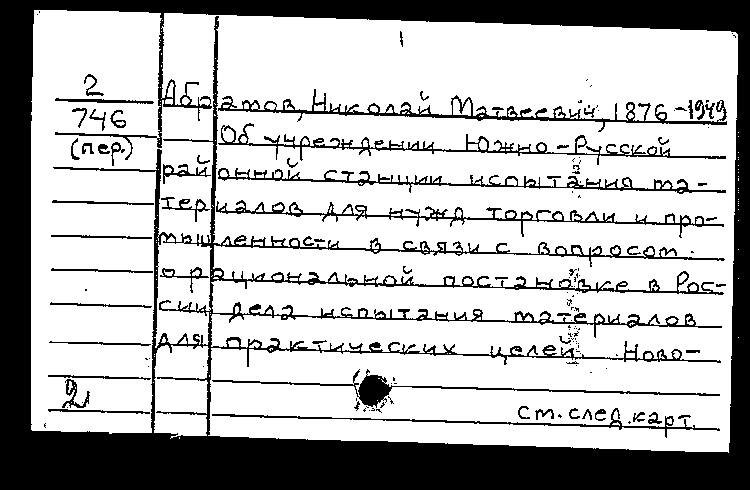 2
746
(пер.)
Абрамов, Николай Матвеевич, 1876-1949
Об учреждении Южно-Русской
районной станции испытания ма-
териалов для нужд торговли и про-
мышленности в связи с вопросом
о рациональной постановке в Рос-
сии дела испытания материалов
для практических целей. Ново-
2
см. след. карт.